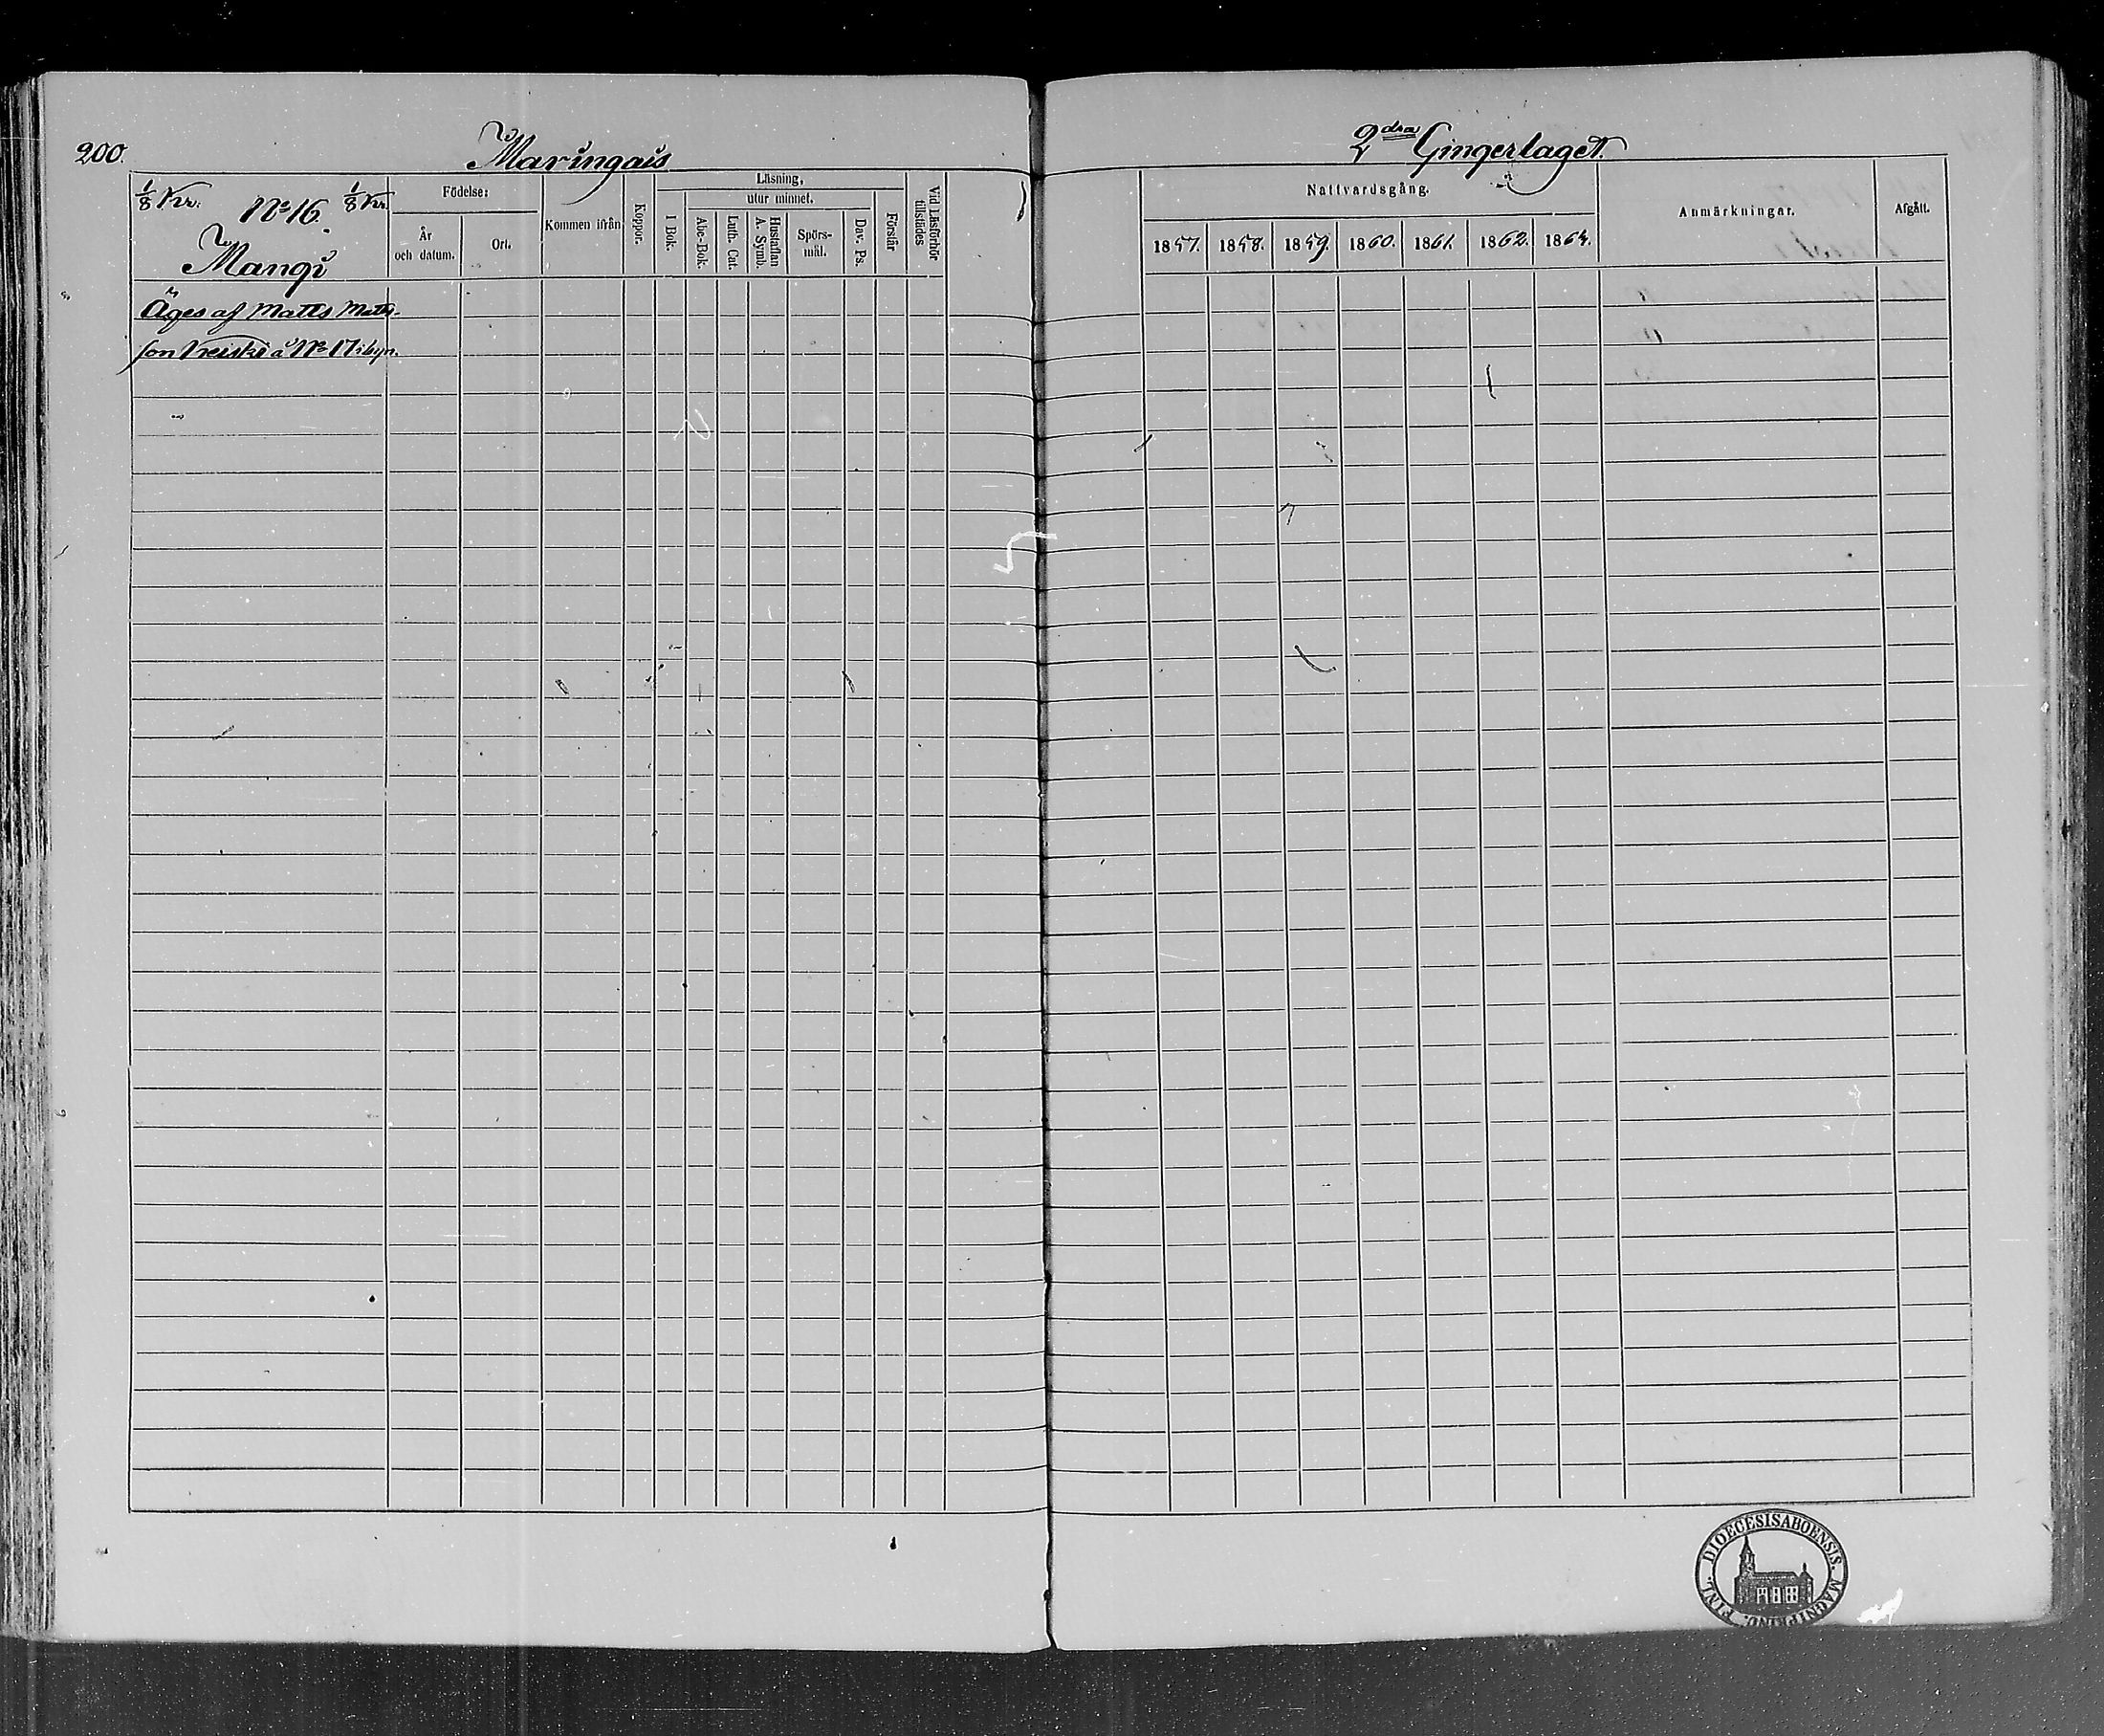 200.
Maringais
2dra Gingerlaget.
1/8 Kr. No 16. 1/8 Kr.
Mangi
Födelse:
År och datum.
Ort.
Kommen ifrån
Koppor.
Läsning,
utur minnet.
I Bok.
Abc-Bok.
Luth. Cat.
Hustaflan A. Symb.
Spörs-mål.
Dav. Ps.
Förstår
Vid Läsförhör tillstädes
Nattvardsgång.
1857. 1858. 1859. 1860. 1861. 1862. 1864.
Anmärkningar.
Afgått.
Äges af Matts Matts-
son å No 17 i byn.
DIOECESIS ABOENSIS. MAGNI PRINC. FINL.